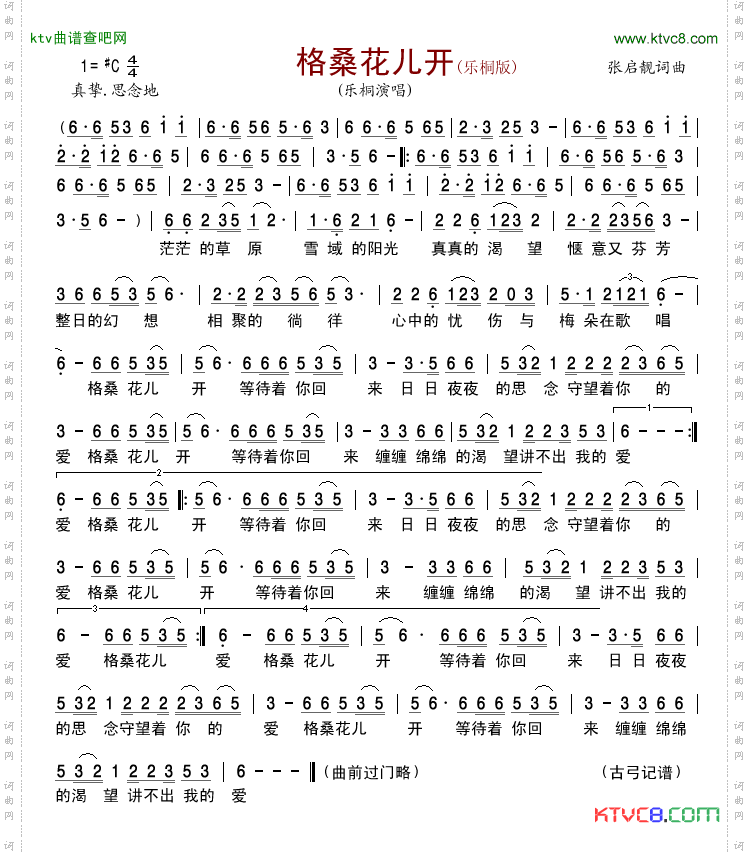 ktv曲谱查吧网
www.ktvc8.com
1=#C 4/4
格桑花儿开(乐桐版)
张启靓词曲
真挚.思念地
(乐桐演唱)
(6·6 53 6 i i | 6·6 56 5·6 3 | 6·6 6 5 65 | 2·3 25 3 - | 6·6 53 6 i i |
2·2 12 6·6 5 | 6 6·5 65 | 3·5 6 - |: 6·6 53 6 i i | 6·6 56 5·6 3 |
6 6·5 65 | 2·3 25 3 - | 6·6 53 6 i i | 2·2 12 6·6 5 | 6 6·5 65
3·5 6 - ) | 6 6 2 35 1 2· | 1·6 2 1 6 - | 2 2 6 123 2 | 2·2 2356 3 - |
茫茫 的草 原 雪 域 的阳光 真真的 渴 望 惬 意又 芬芳
3 6 6 5 3 5 6· | 2·2 2 3 5 6 5 3· | 2 2 6 123 2 03 | 5·1 2121 6 - |
整日的幻 想 相 聚的 徜 徉 心中的 忧 伤 与 梅 朵在歌 唱
6 - 6 6 5 35 | 5 6· 6 6 6 5 35 | 3 - 3·5 6 6 | 5 32 1 2 2 2 2 3 6 5 |
格桑 花儿 开 等待着 你回 来 日 日 夜夜 的思 念 守望着你 的
3 - 6 6 5 35 | 5 6· 6 6 6 5 35 | 3 - 3 3 6 6 | 5 32 1 2 2 2 3 5 3 | 6 - - - :|
爱 格桑 花儿 开 等待着你回 来 缠缠 绵绵 的渴 望讲不出 我的 爱
6 - 6 6 5 35 |: 5 6· 6 6 6 5 3 5 | 3 - 3·5 6 6 | 5 32 1 2 2 2 2 3 6 5 |
爱 格桑 花儿 开 等待着你回 来 日 日 夜夜 的思 念 守望着你 的
3 - 6 6 5 35 | 5 6· 6 6 6 5 35 | 3 - 3 3 6 6 | 5 32 1 2 2 2 3 5 3 |
爱 格桑 花儿 开 等待着你回 来 缠缠 绵绵 的渴 望 讲不出 我的
6 - 6 6 5 3 5 :| 6 - 6 6 5 3 5 | 5 6· 6 6 6 5 35 | 3 - 3·5 6 6 |
爱 格桑花儿 爱 格桑 花儿 开 等待着 你回 来 日 日 夜夜
5 32 1 2 2 2 2 3 6 5 | 3 - 6 6 5 35 | 5 6· 6 6 6 5 35 | 3 - 3 3 6 6 |
的思 念守望着 你 的 爱 格桑花儿 开 等待着 你回 来 缠缠 绵绵
5 3 2 1 2 2 3 5 3 | 6 - - - ‖ (曲前过门略) (古弓记谱)
的渴 望 讲不出 我的 爱
KTVC8.COM